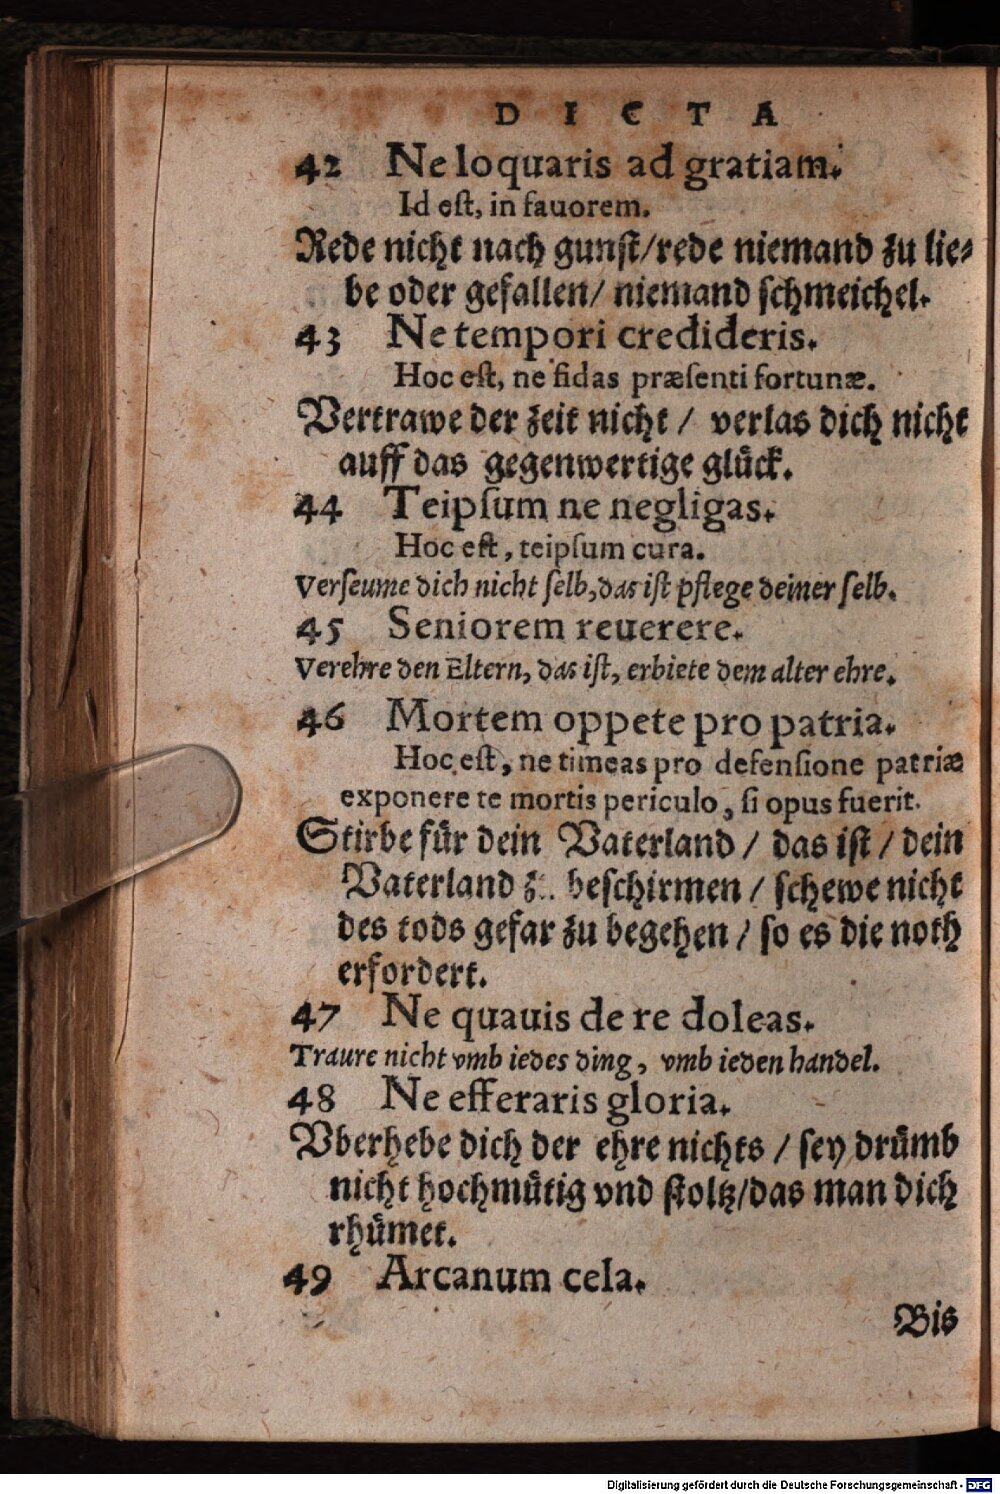 DICTA
42 Ne loquaris ad gratiam.
Id est, in fauorem.
Rede nicht nach gunst/rede niemand zu lie-
be oder gefallen/ niemand schmeichel.
43 Ne tempori credideris.
Hoc est, ne fidas præsenti fortunæ.
Vertrawe der zeit nicht / verlas dich nicht
auff das gegenwertige glück.
44 Teipsum ne negligas.
Hoc est, teipsum cura.
Verseume dich nicht selb, das ist pflege deiner selb.
45 Seniorem reuerere.
Verehre den Eltern, das ist, erbiete dem alter ehre.
46 Mortem oppete pro patria.
Hoc est, ne timeas pro defensione patriæ
exponere te mortis periculo, si opus fuerit.
Stirbe für dein Vaterland / das ist / dein
Vaterland beschirmen / schewe nicht
des tods gefar zu begehen / so es die noth
erfordert.
47 Ne quauis de re doleas.
Traure nicht vmb iedes ding, vmb ieden handel.
48 Ne efferaris gloria.
Vberhebe dich der ehre nichts / sey drümb
nicht hochmütig vnd stoltz/das man dich
rhümet.
49 Arcanum cela.
Bis
Digitalisierung gefördert durch die Deutsche Forschungsgemeinschaft - DFG